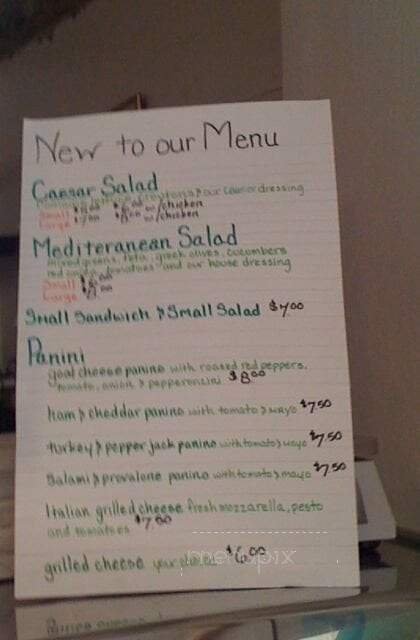 New to our Menu
Caesar Salad
lettuce, croutons & our caesar dressing
Small w/chicken
Large $7.00 w/chicken
Mediteranean Salad
mixed greens, feta, greek olives, cucumbers
red onion, tomatoes and our house dressing
Small
Large
Small Sandwich & Small Salad $7.00
Panini
goat cheese panino with roasted red peppers,
tomato, onion & pepperoncini $8.00
ham & cheddar panino with tomato & mayo $7.50
turkey & pepper jack panino with tomato & mayo $7.50
Salami & provalone panino with tomato & mayo $7.50
Italian grilled cheese fresh mozzarella, pesto
and tomatoes $7.00
grilled cheese your choice $6.00
menupix